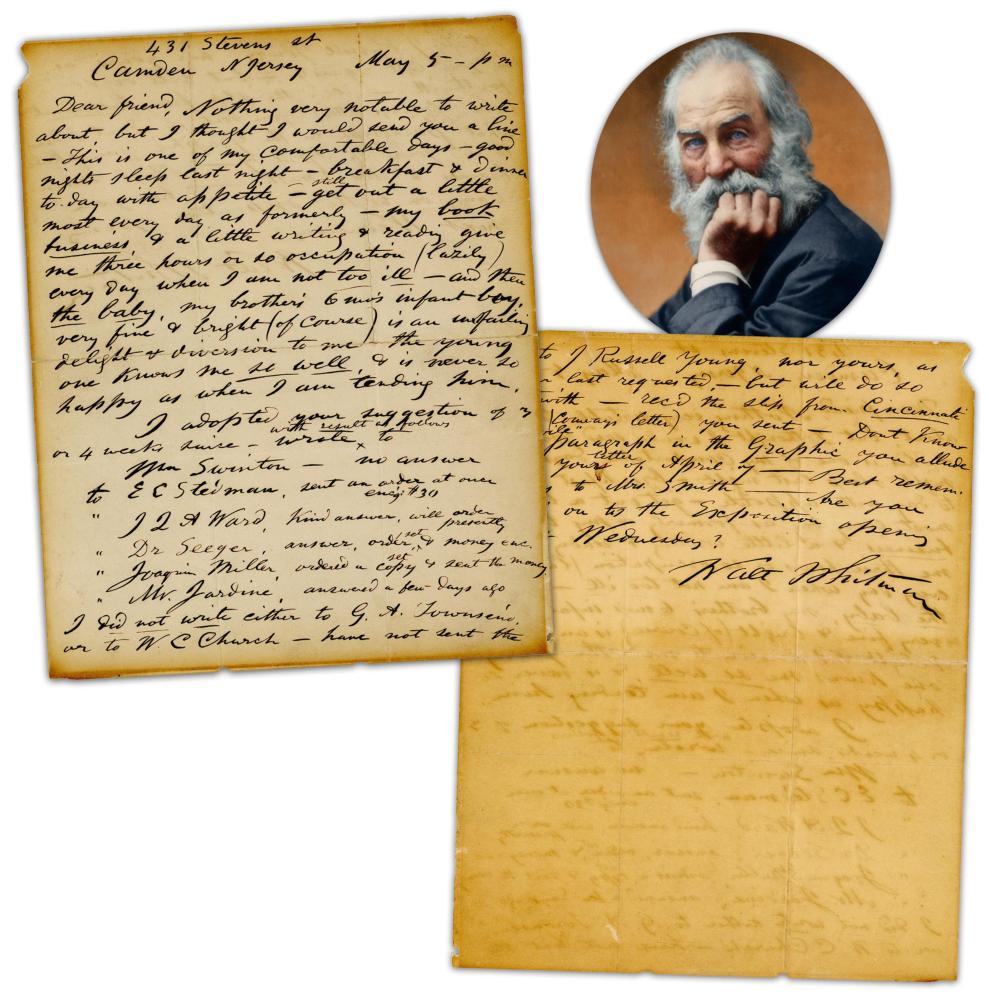 431 Stevens st
Camden N Jersey May 5 - p m
Dear friend, Nothing very notable to write
about but I thought I would send you a line
- This is one of my comfortable days - good
nights sleep last night - breakfast & dinner
to-day with appetite - still get out a little
most every day as formerly - my book
business, & a little writing & reading give
me three hours or so occupation (lazily)
every day when I am not too ill - and then
the baby, my brother's 6 mo's infant boy,
very fine & bright (of course) is an unfailing
delight & diversion to me - the young
one knows me so well, & is never so
happy as when I am tending him.
I adopted your suggestion of 3
or 4 weeks since - wrote with result as follows to
Wm Swinton - no answer
to E C Stedman, sent an order at once
encg: $30
" J Q A Ward, kind answer, will order
presently
" Dr Seeger, answer, order, set & money enc.
" Joaquin Miller, ordered a copy set & sent the money
" Mr. Jardine, answered a few days ago
I did not write either to G. A. Townsend,
or to W. C Church - have not sent the
to J Russell Young, nor yours, as
last requested, - but will do so
- rec'd the slip from Cincinnati
(Conway's letter) you sent - Dont know
paragraph in the Graphic you allude
yours letter of April 27 - Best remem.
to Mrs. Smith - Are you
on to the Exposition opening
- Wednesday?
Walt Whitman